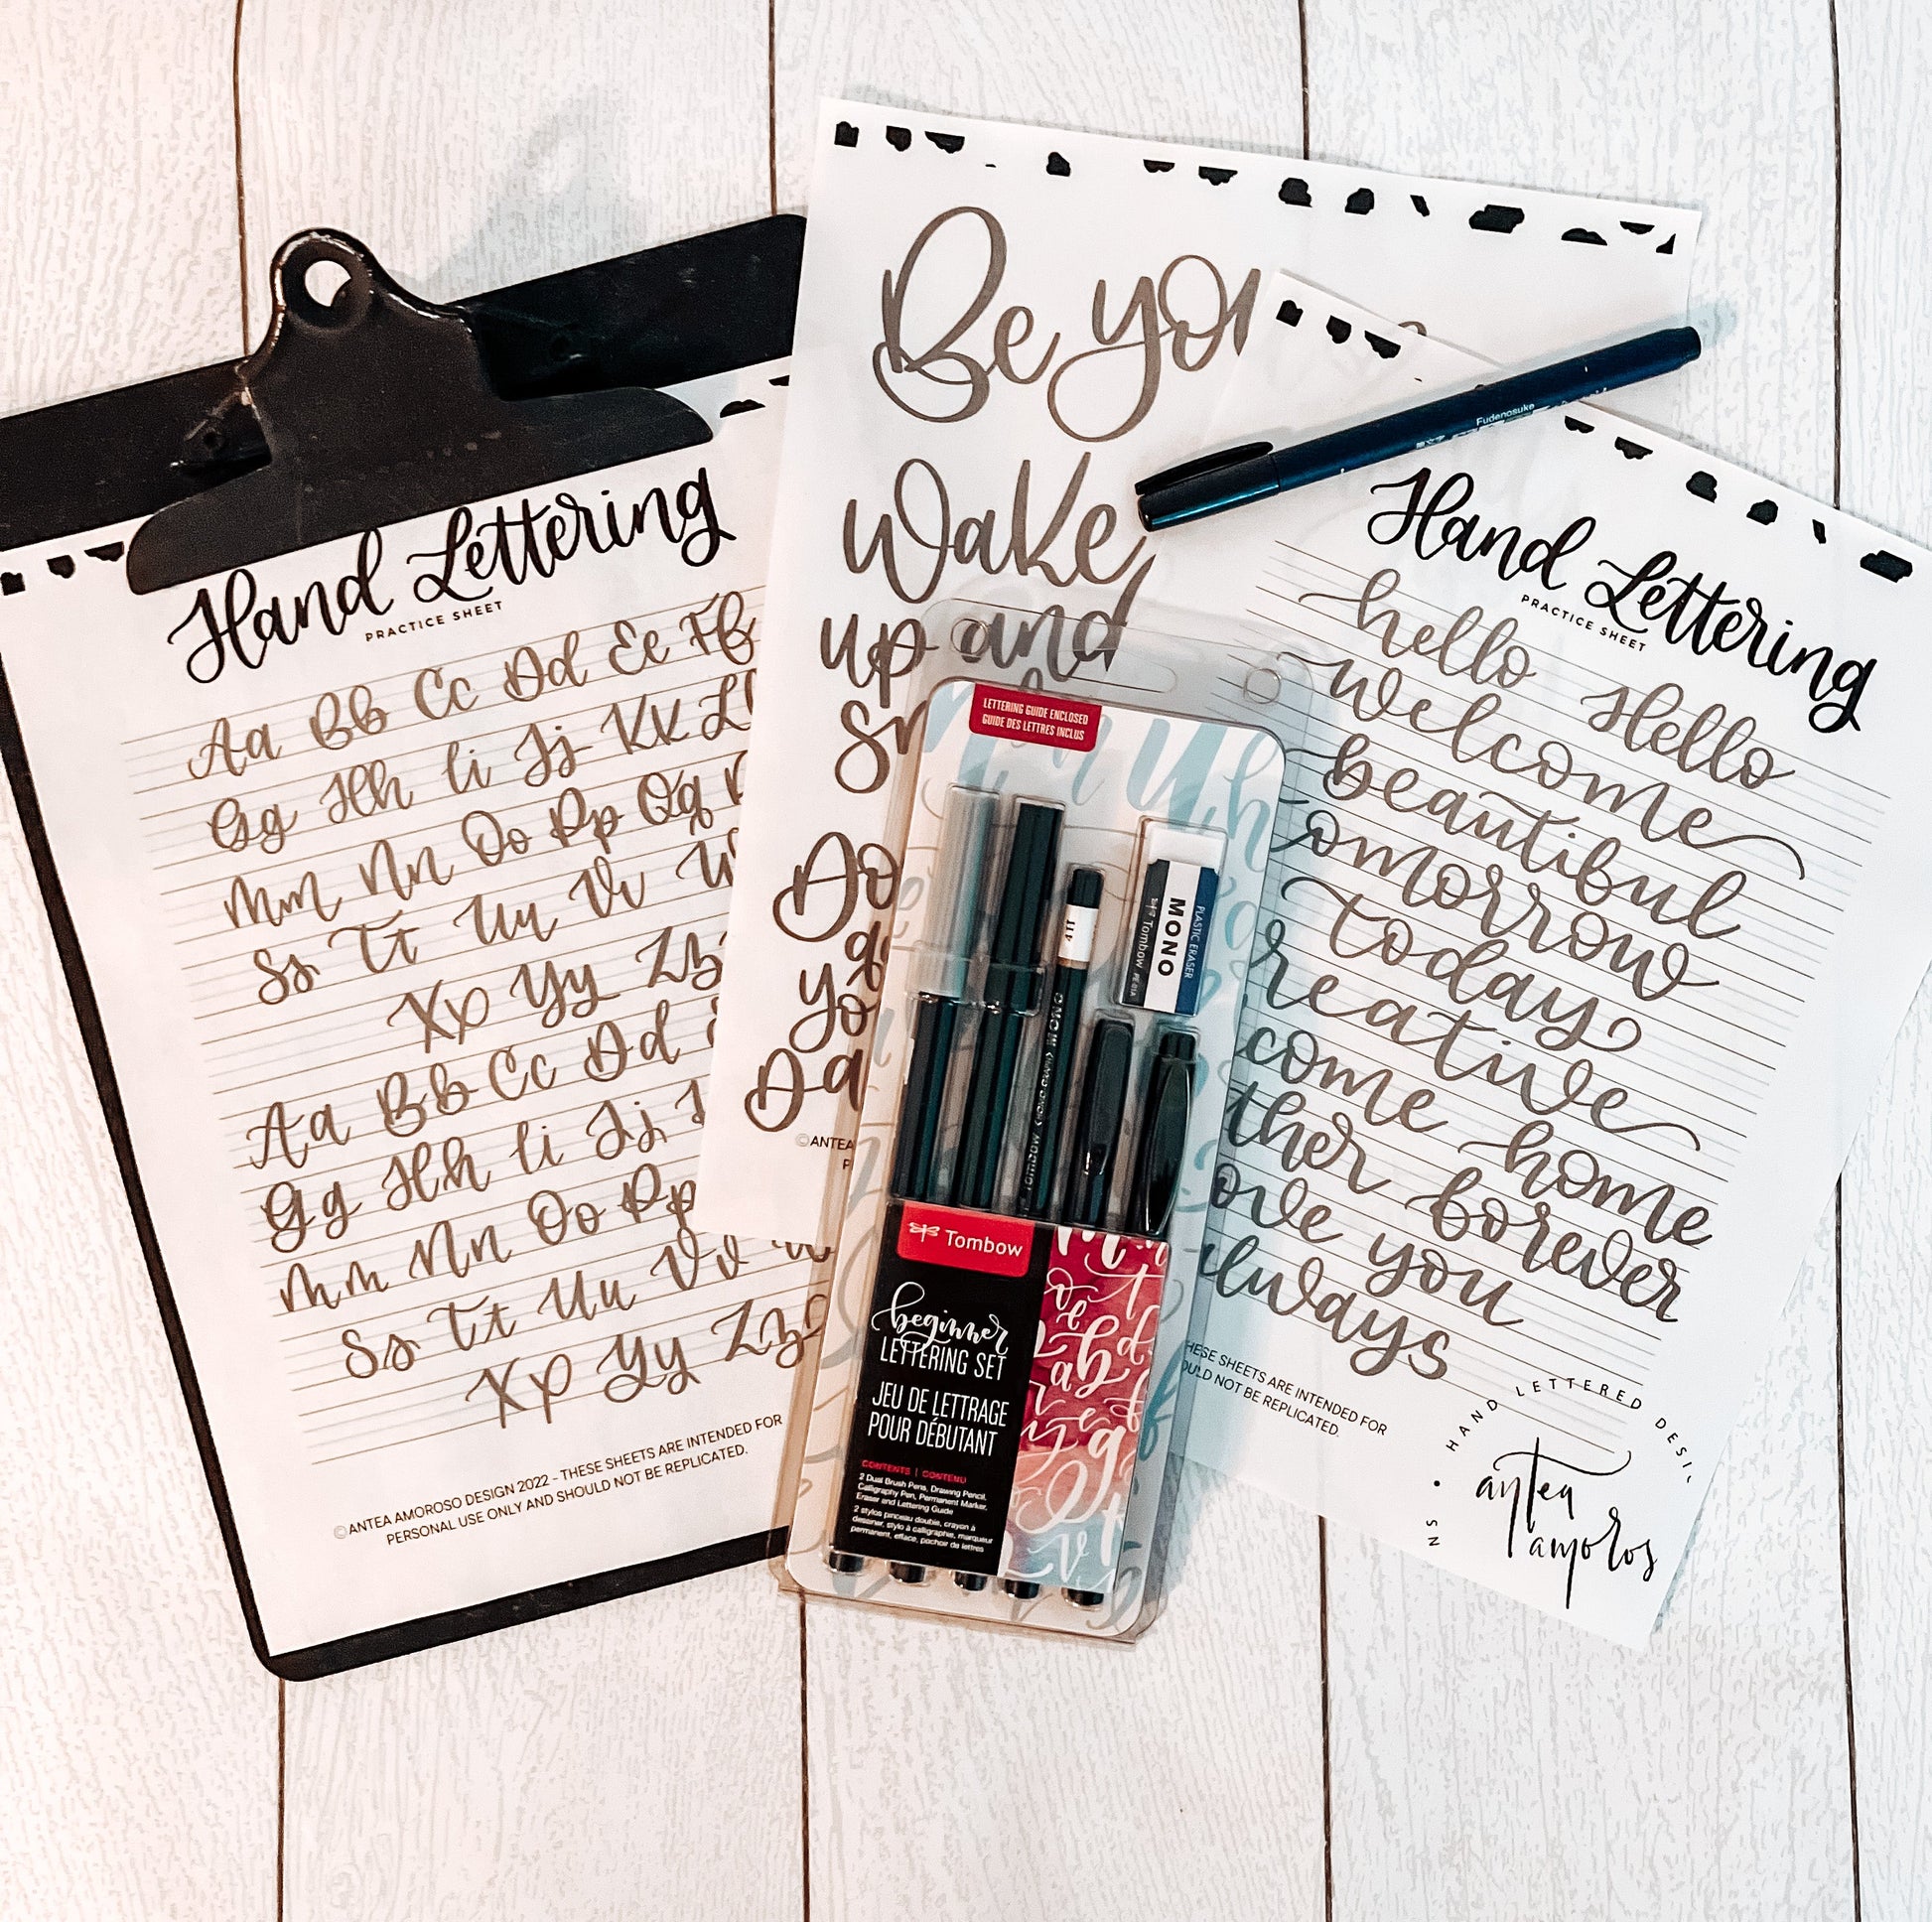 Hand Lettering
PRACTICE SHEET
Aa Bb Cc Dd Ee Ff
Gg Hh Ii Jj Kk Ll
Mm Nn Oo Pp Qq
Ss Tt Uu Vv
Xx Yy Zz
Aa Bb Cc Dd
Gg Hh Ii Jj
Mm Nn Oo Pp
Ss Tt Uu Vv
Xx Yy Zz
©ANTEA AMOROSO DESIGN 2022 - THESE SHEETS ARE INTENDED FOR
PERSONAL USE ONLY AND SHOULD NOT BE REPLICATED.
Be you
Wake
up and
Do
yo
Da
©ANTEA
Fudenosuke
LETTERING GUIDE ENCLOSED
GUIDE DES LETTRES INCLUS
MONO
PLASTIC ERASER
Tombow PE-01A
4H
Tombow MONO
Tombow
beginner
LETTERING SET
JEU DE LETTRAGE
POUR DÉBUTANT
CONTENTS | CONTENU
2 Dual Brush Pens, Drawing Pencil,
Calligraphy Pen, Permanent Marker,
Eraser and Lettering Guide
2 stylos pinceau double, crayon à
dessiner, stylo à calligraphie, marqueur
permanent, efface, pochoir de lettres
Hand Lettering
PRACTICE SHEET
hello Hello
welcome
beautiful
omorrow
today
creative
come home
ther forever
ove you
always
HESE SHEETS ARE INTENDED FOR
OULD NOT BE REPLICATED.
HAND LETTERED DESIGNS
antea
amoros